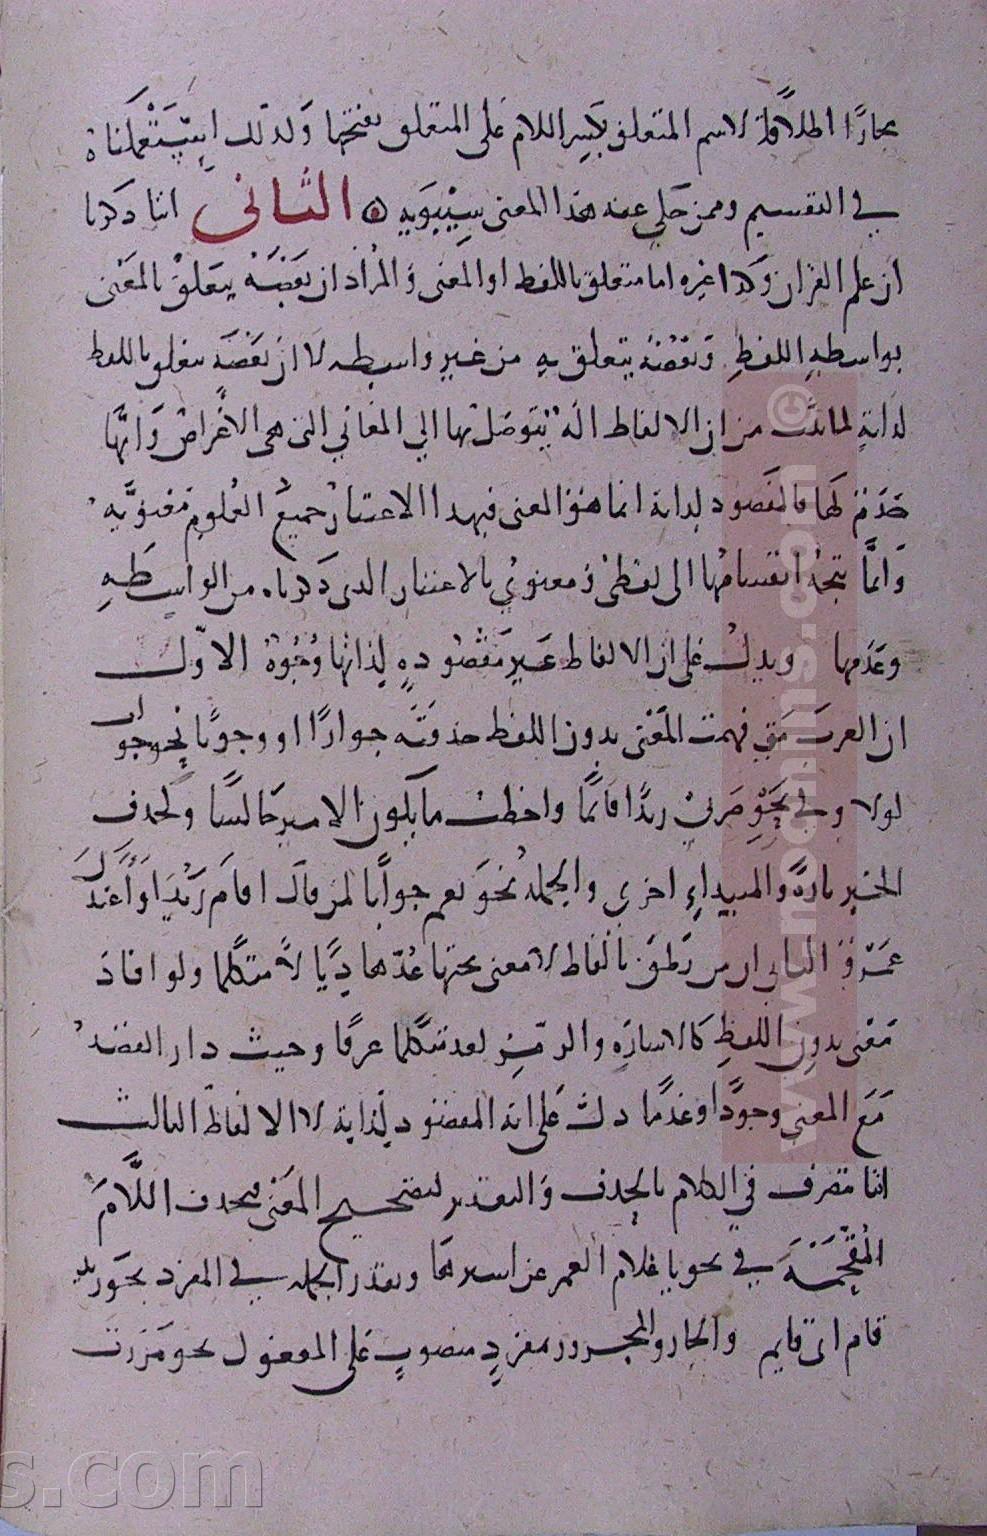 مجازًا اطلاقا لاسم المتعلق بكسر اللام على المتعلق بفتحها ولذلك استعملناه
في التقسيم وممن حكي عنه هذا المعنى سيبويه ه الثاني انا ذكرنا
ان علم القران وكذا غيره اما متعلق باللفظ او المعنى والمراد ان بعضه يتعلق بالمعنى
بواسطه اللفظ وبعضه يتعلق به من غير واسطه لا ان بعضه يتعلق باللفظ
لذاته لما ثبت من ان الالفاظ الة يتوصل بها الي المعاني التي هي الاغراض وانها
خدم لها فالمقصود لذاته انما هو المعنى فبهذا الاعتبار جميع العلوم معنويه
وانما يتجه انقسامها الى لفظي ومعنوي بالاعتبار الذي ذكرناه من الواسطه
وعدمها ويدل على ان الالفاظ غير مقصوده لذاتها وجوه الاول
ان العرب متي فهمت المعنى بدون اللفظ حذفته جوازًا او وجوبًا نحو جواب
لولا وفي نحو ضربي زيدًا قائمًا واخطب ما يكون الامير جالسًا وتحذف
الخبر تارة والمبتداء اخرى والجمله نحو نعم جوابا لمن قال اقام زيد او أعندك
عمرو الثاني ان من نطق بالفاظ لا معنى تحتها عد هاذيًا لا متكلما ولو افاد
معنى بدون اللفظ كالاشاره والرمز لعد متكلما عرفا وحيث دار القصد
مع المعنى وجودًا وعدمًا دل على انه المقصود لذاته لا الالفاظ الثالث
انا نتصرف في الكلام بالحذف والتقدير لتصحيح المعنى فنحذف اللام
المقحمة في نحو يا غلام العمر عن اسرها ونقدر الجمله في المفرد نحو زيد
قام اي قايم والجار والمجرور بمفرد منصوب على المفعول نحو مررت
www.noormins.com ©
s.com